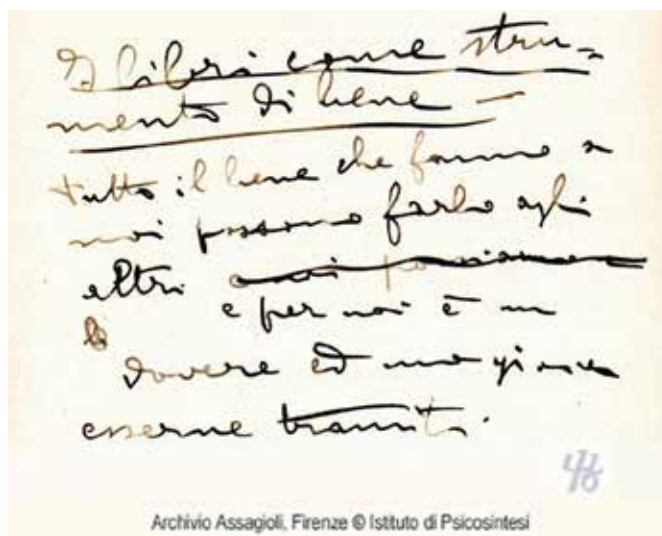 I libri come stru-
mento di bene –
tutto il bene che fanno a
noi possono farlo agli
altri
e per noi è un
dovere ed una gioia
esserne tramiti.
Archivio Assagioli, Firenze © Istituto di Psicosintesi